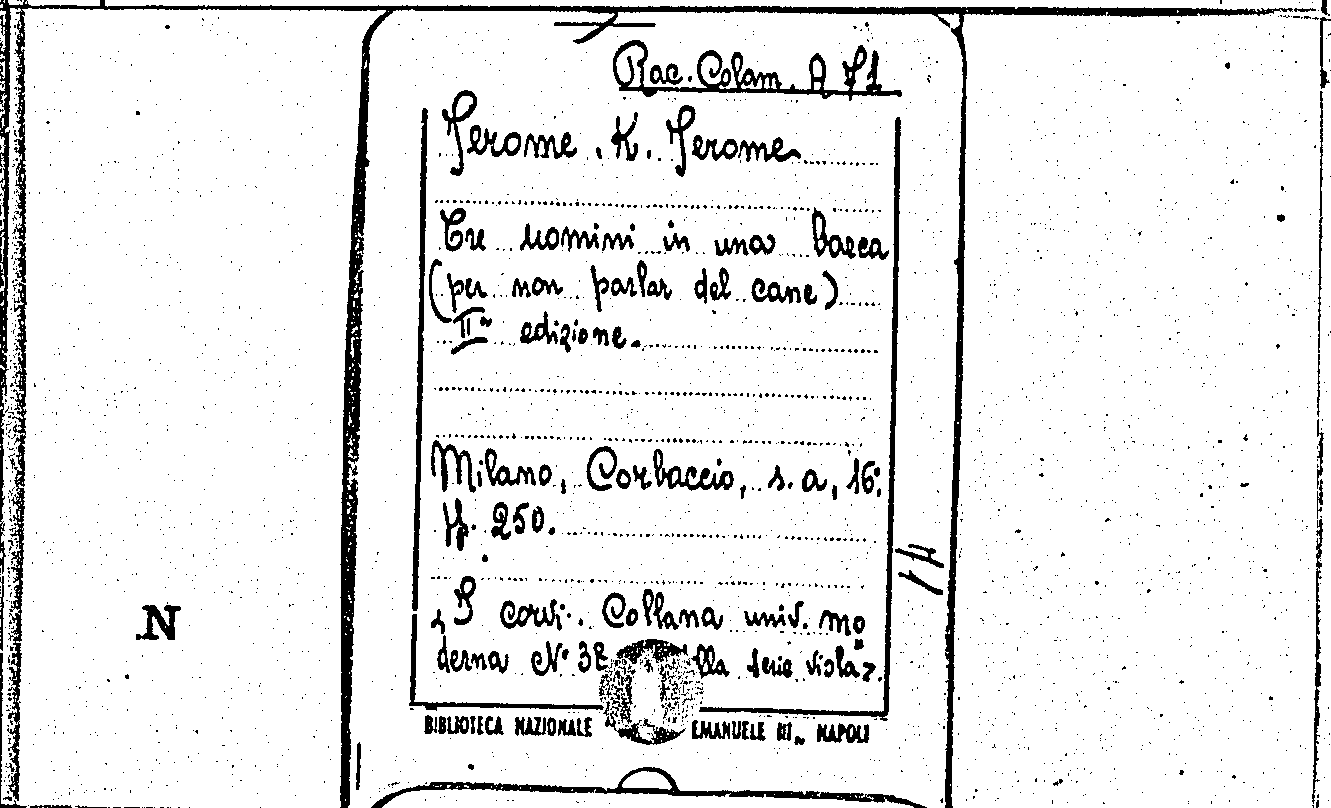 Rac. Colam. A 71
Jerome . K. Jerome
Tre uomini in una barca
(per non parlar del cane)
IIª edizione.
Milano, Corbaccio, s. a, 16°,
pp. 250.
„I corvi". Collana univ. mo
derna N° 38 lla serie viola".
BIBLIOTECA NAZIONALE EMANUELE III„ NAPOLI
N